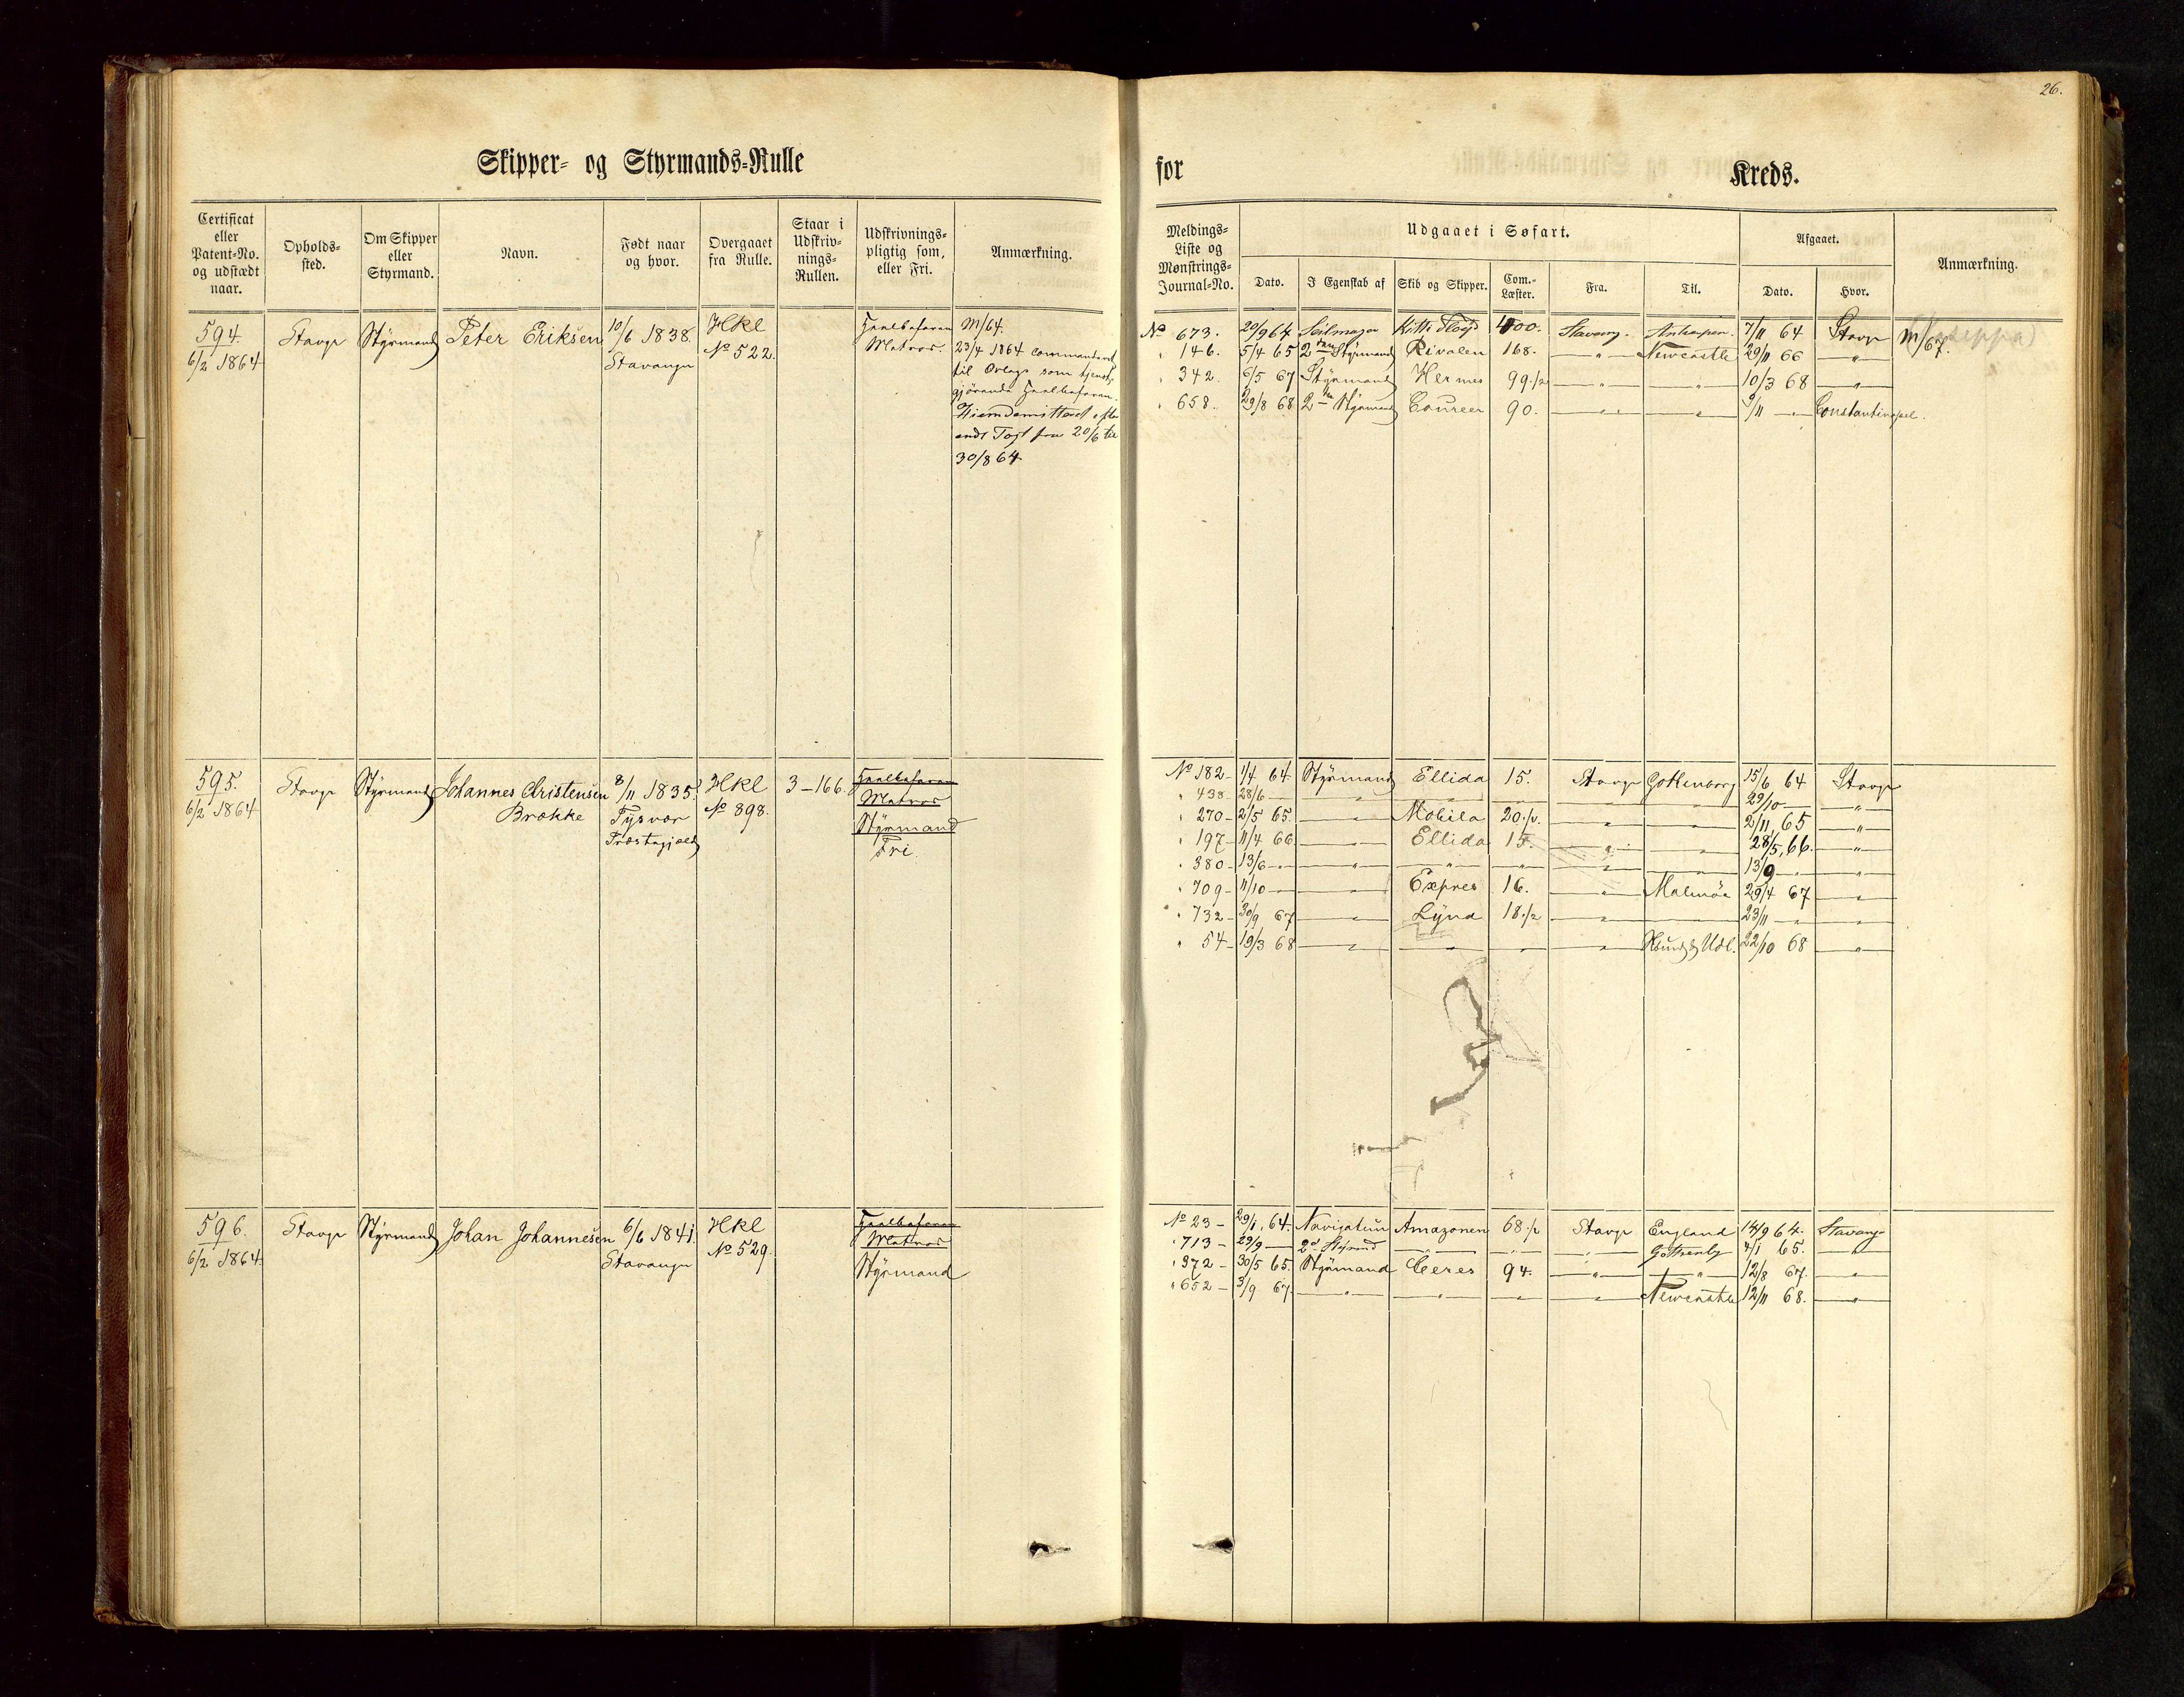 26.
Skipper- og Styrmands-Rulle
for Kreds.
Certificat eller Patent-No. og udstædt naar.
Opholds-sted.
Om Skipper eller Styrmand.
Navn.
Født naar og hvor.
Overgaaet fra Rulle.
Staar i Udskriv-nings-Rullen.
Udskrivnings-pligtig som, eller Fri.
Anmærkning.
Meldings-Liste og Mønstrings-Journal-No.
Udgaaet i Søfart.
Dato.
I Egenskab af
Skib og Skipper.
Com.-Læster.
Fra.
Til.
Afgaaet.
Dato.
Hvor.
Anmærkning.
594.
6/2 1864
Stavgr
Styrmand
Peter Eriksen
10/6 1838.
Stavanger
Hkl
No 522.
Matros.
M/64.
23/4 1864 commanderet
til Orlogs som tjenst-
gjørende
30/8 64
No 673. 20/9 64 Seilmager 400. Stavang. Antwerpen. 7/11 64 Stavgr M/67.
" 146. 5/4 65 2den Styrmand Rivalen 168. — " — Newcastle 29/11 66 — " —
" 342. 6/5 67 Styrmand Hermes 99 1/2 — " — — " — 10/3 68 — " —
" 658. 29/8 68 2den Styrmand Coureer 90. — " — — " — 9/11 — Constantinopel.
595.
6/2 1864
Stavgr
Styrmand
Johannes Christensen
Brække
8/11 1835.
Tysvær
Præstegjæld
Hkl
No 898.
3 – 166.
Matros
Styrmand
Fri.
No 182 – 1/4 64 Styrmand Ellida 15. Stavgr Gottenborg 15/6 64 Stavgr
" 438 – 28/6 — — " — 29/10 — — " —
" 270 – 2/5 65. — " — Mobila 20 — " — — " — 2/11 65 — " —
" 197 – 11/4 66 — " — Ellida 15. — " — — " — 28/5 66. — " —
" 380 – 13/6 — — " — — " — — " — — " — — " — 13/9 — — " —
" 709 – 11/10 — — " — Expres 16. — " — Malmöe 29/4 67 — " —
" 732 – 30/9 67 — " — Lyna 18 1/2 — " — — " — 23/11 — — " —
" 54 – 19/3 68 — " — — " — — " — — " — Udl. 22/10 68 — " —
596.
6/2 1864.
Stavgr
Styrmand
Johan Johannesen
6/6 1841.
Stavanger
Hkl
No 529.
Matros
Styrmand
No 23 – 29/1 64. Amazonen 68 1/2 Stavgr England 14/9 64. Stavang
" 713 – 29/9 — 2d Styrmd — " — — " — — " — Göttenbg 4/1 65. — " —
" 372 – 30/5 65. Styrmand Ceres 94. — " — — " — 12/8 67. — " —
" 652 – 3/9 67. — " — — " — — " — — " — Newcastle 12/11 68. — " —